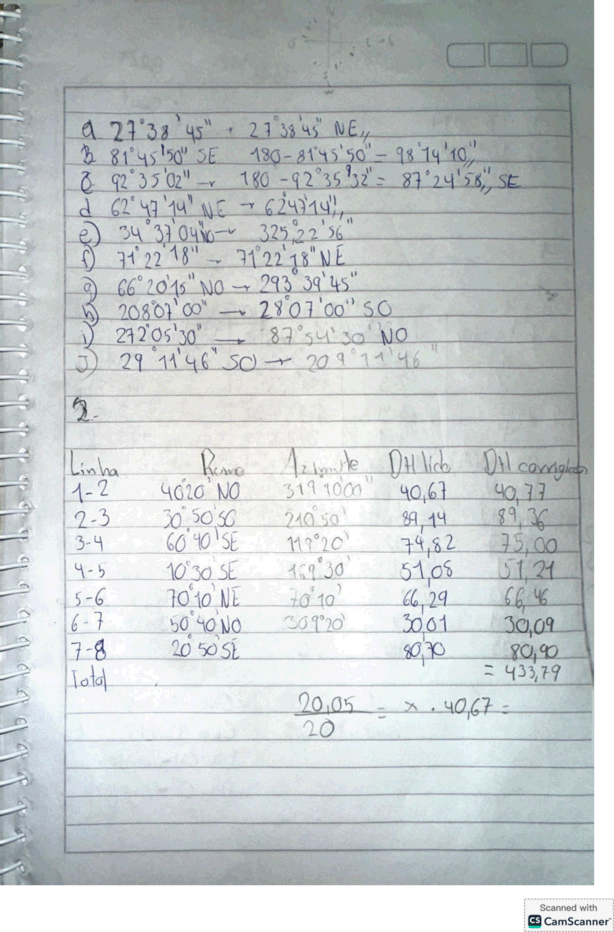 a 27°38'45" • 27°38'45" NE,,
b. 81°45'50" SE 180-81°45'50" = 98°14'10",,
c. 92°35'02" → 180 - 92°35'32" = 87°24'58",, SE
d 62°47'14" NE → 62°47'14",,
e) 34°37'04" NO → 325°22'56"
f) 71°22'18" → 71°22'18" NE
g) 66°20'15" NO → 293°39'45"
h) 208°07'00" → 28°07'00" SO
i) 272°05'30" → 87°54'30" NO
J) 29°11'46" SO → 209°11'46"
2.
Linha Rumo Azimute DH lida DH corrigida
1-2 40°20' NO 40,67 40,77
2-3 30°50' SO 210°50' 89,14 89,36
3-4 60°40' SE 119°20' 74,82 75,00
4-5 10°30' SE 169°30' 51,08 51,21
5-6 70°10' NE 70°10' 66,29 66,46
6-7 50°40' NO 309°20' 30,01 30,09
7-8 20°50' SE 80,70 80,90
= 433,79
Total
20,05 = x . 40,67 =
20
Scanned with
CS CamScanner